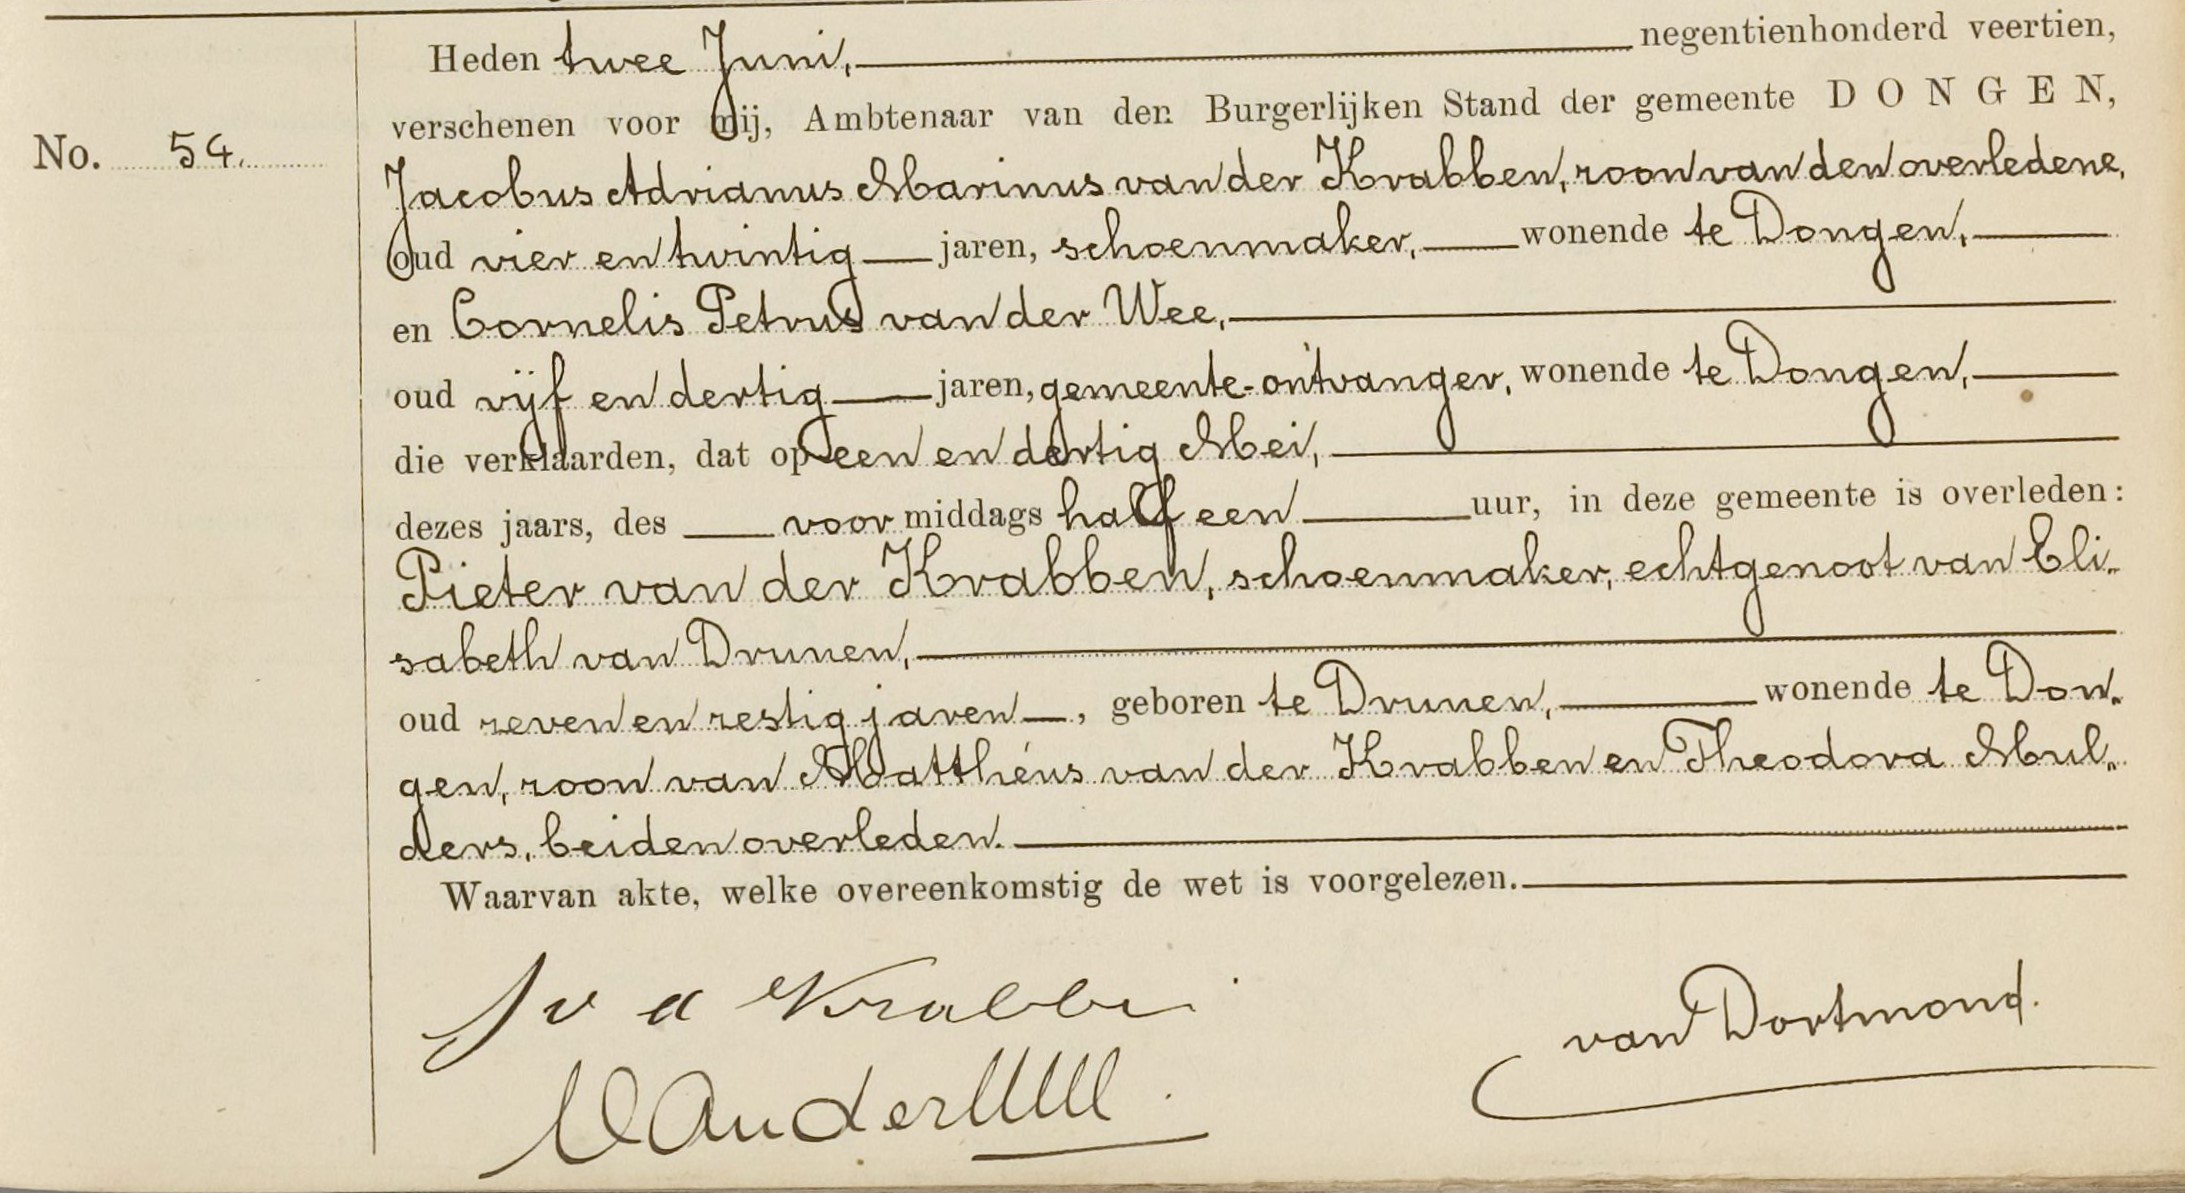 Heden twee Juni, negentienhonderd veertien,
verschenen voor mij, Ambtenaar van den Burgerlijken Stand der gemeente DONGEN,
No. 54.
Jacobus Adrianus Marinus van der Krabben, zoon van den overledene,
oud vier en twintig jaren, schoenmaker, wonende te Dongen,
en Cornelis Petrus van der Wee,
oud vijf en dertig jaren, gemeente-ontvanger, wonende te Dongen,
die verklaarden, dat op een en dertig Mei,
dezes jaars, des voor middags half een uur, in deze gemeente is overleden:
Pieter van der Krabben, schoenmaker, echtgenoot van Eli-
sabeth van Drunen,
oud zeven en zestig jaren, geboren te Drunen, wonende te Don-
gen, zoon van Matthéus van der Krabben en Theodora Mul-
ders, beiden overleden.
Waarvan akte, welke overeenkomstig de wet is voorgelezen.
J v d Krabbe
van Dortmond.
VanderWee